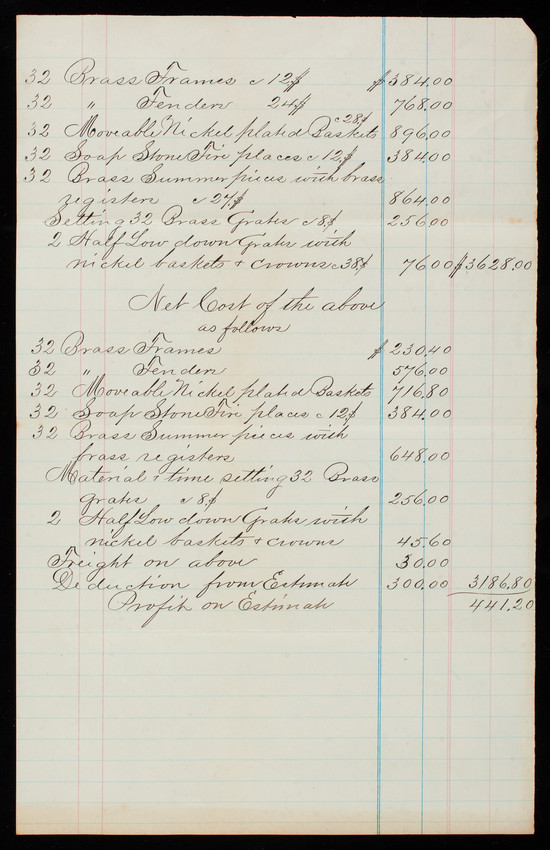 32 Brass Frames c 12$ $384.00
32 " Fenders 24$ 768.00
32 Moveable Nickel plated Baskets c 28$ 896.00
32 Soap Stone Fire places c 12$ 384.00
32 Brass Summer pieces with brass
registers c 27$ 864.00
Setting 32 Brass Grates c 8$ 256.00
2 Half Low down Grates with
nickel baskets + crowns c 38$ 76.00 $3628.00
Net Cost of the above
as follows
32 Brass Frames $230.40
32 " Fenders 576.00
32 Moveable Nickel plated Baskets 716.80
32 Soap Stone Fire places c 12$ 384.00
32 Brass Summer pieces with
brass registers 648.00
Material + time setting 32 Brass
grates c 8$ 256.00
2 Half Low down Grates with
nickel baskets + crowns 45.60
Freight on above 30.00
Deduction from Estimate 300.00 3186.80
Profit on Estimate 441.20